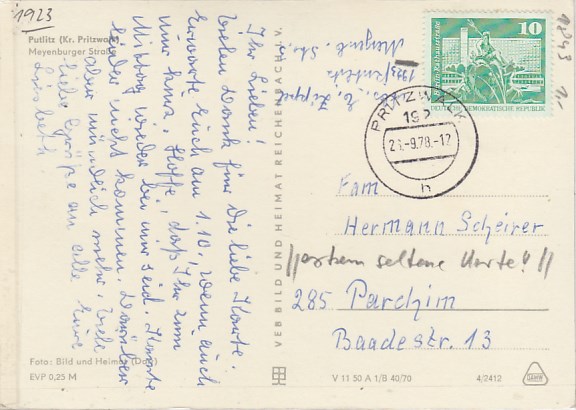 1923
Putlitz (Kr. Pritzwalk)
Meyenburger Straße
Ihr Lieben!
Vielen Dank für die liebe Karte.
Erwarte Euch am 1.10., wenn auch
nur kurz. Hoffe, daß Ihr zum
Mittag wieder bei mir seid. Konnte
leider nicht kommen. Darüber
aber mündlich mehr. Viele
liebe Grüße an alle Eure
Liesbeth
Foto: Bild und Heimat
EVP 0,25 M
VEB BILD UND HEIMAT REICHENBACH i. V.
10
Berlin, Rathausstraße
DEUTSCHE DEMOKRATISCHE REPUBLIK
PRITZWALK
192
-9.78.-12
h
Meyenb. Str.
Fam
Hermann Scheirer
extrem seltene Karte!!
285 Parchim
Baadestr. 13
V 11 50 A 1/B 40/70
4/2412